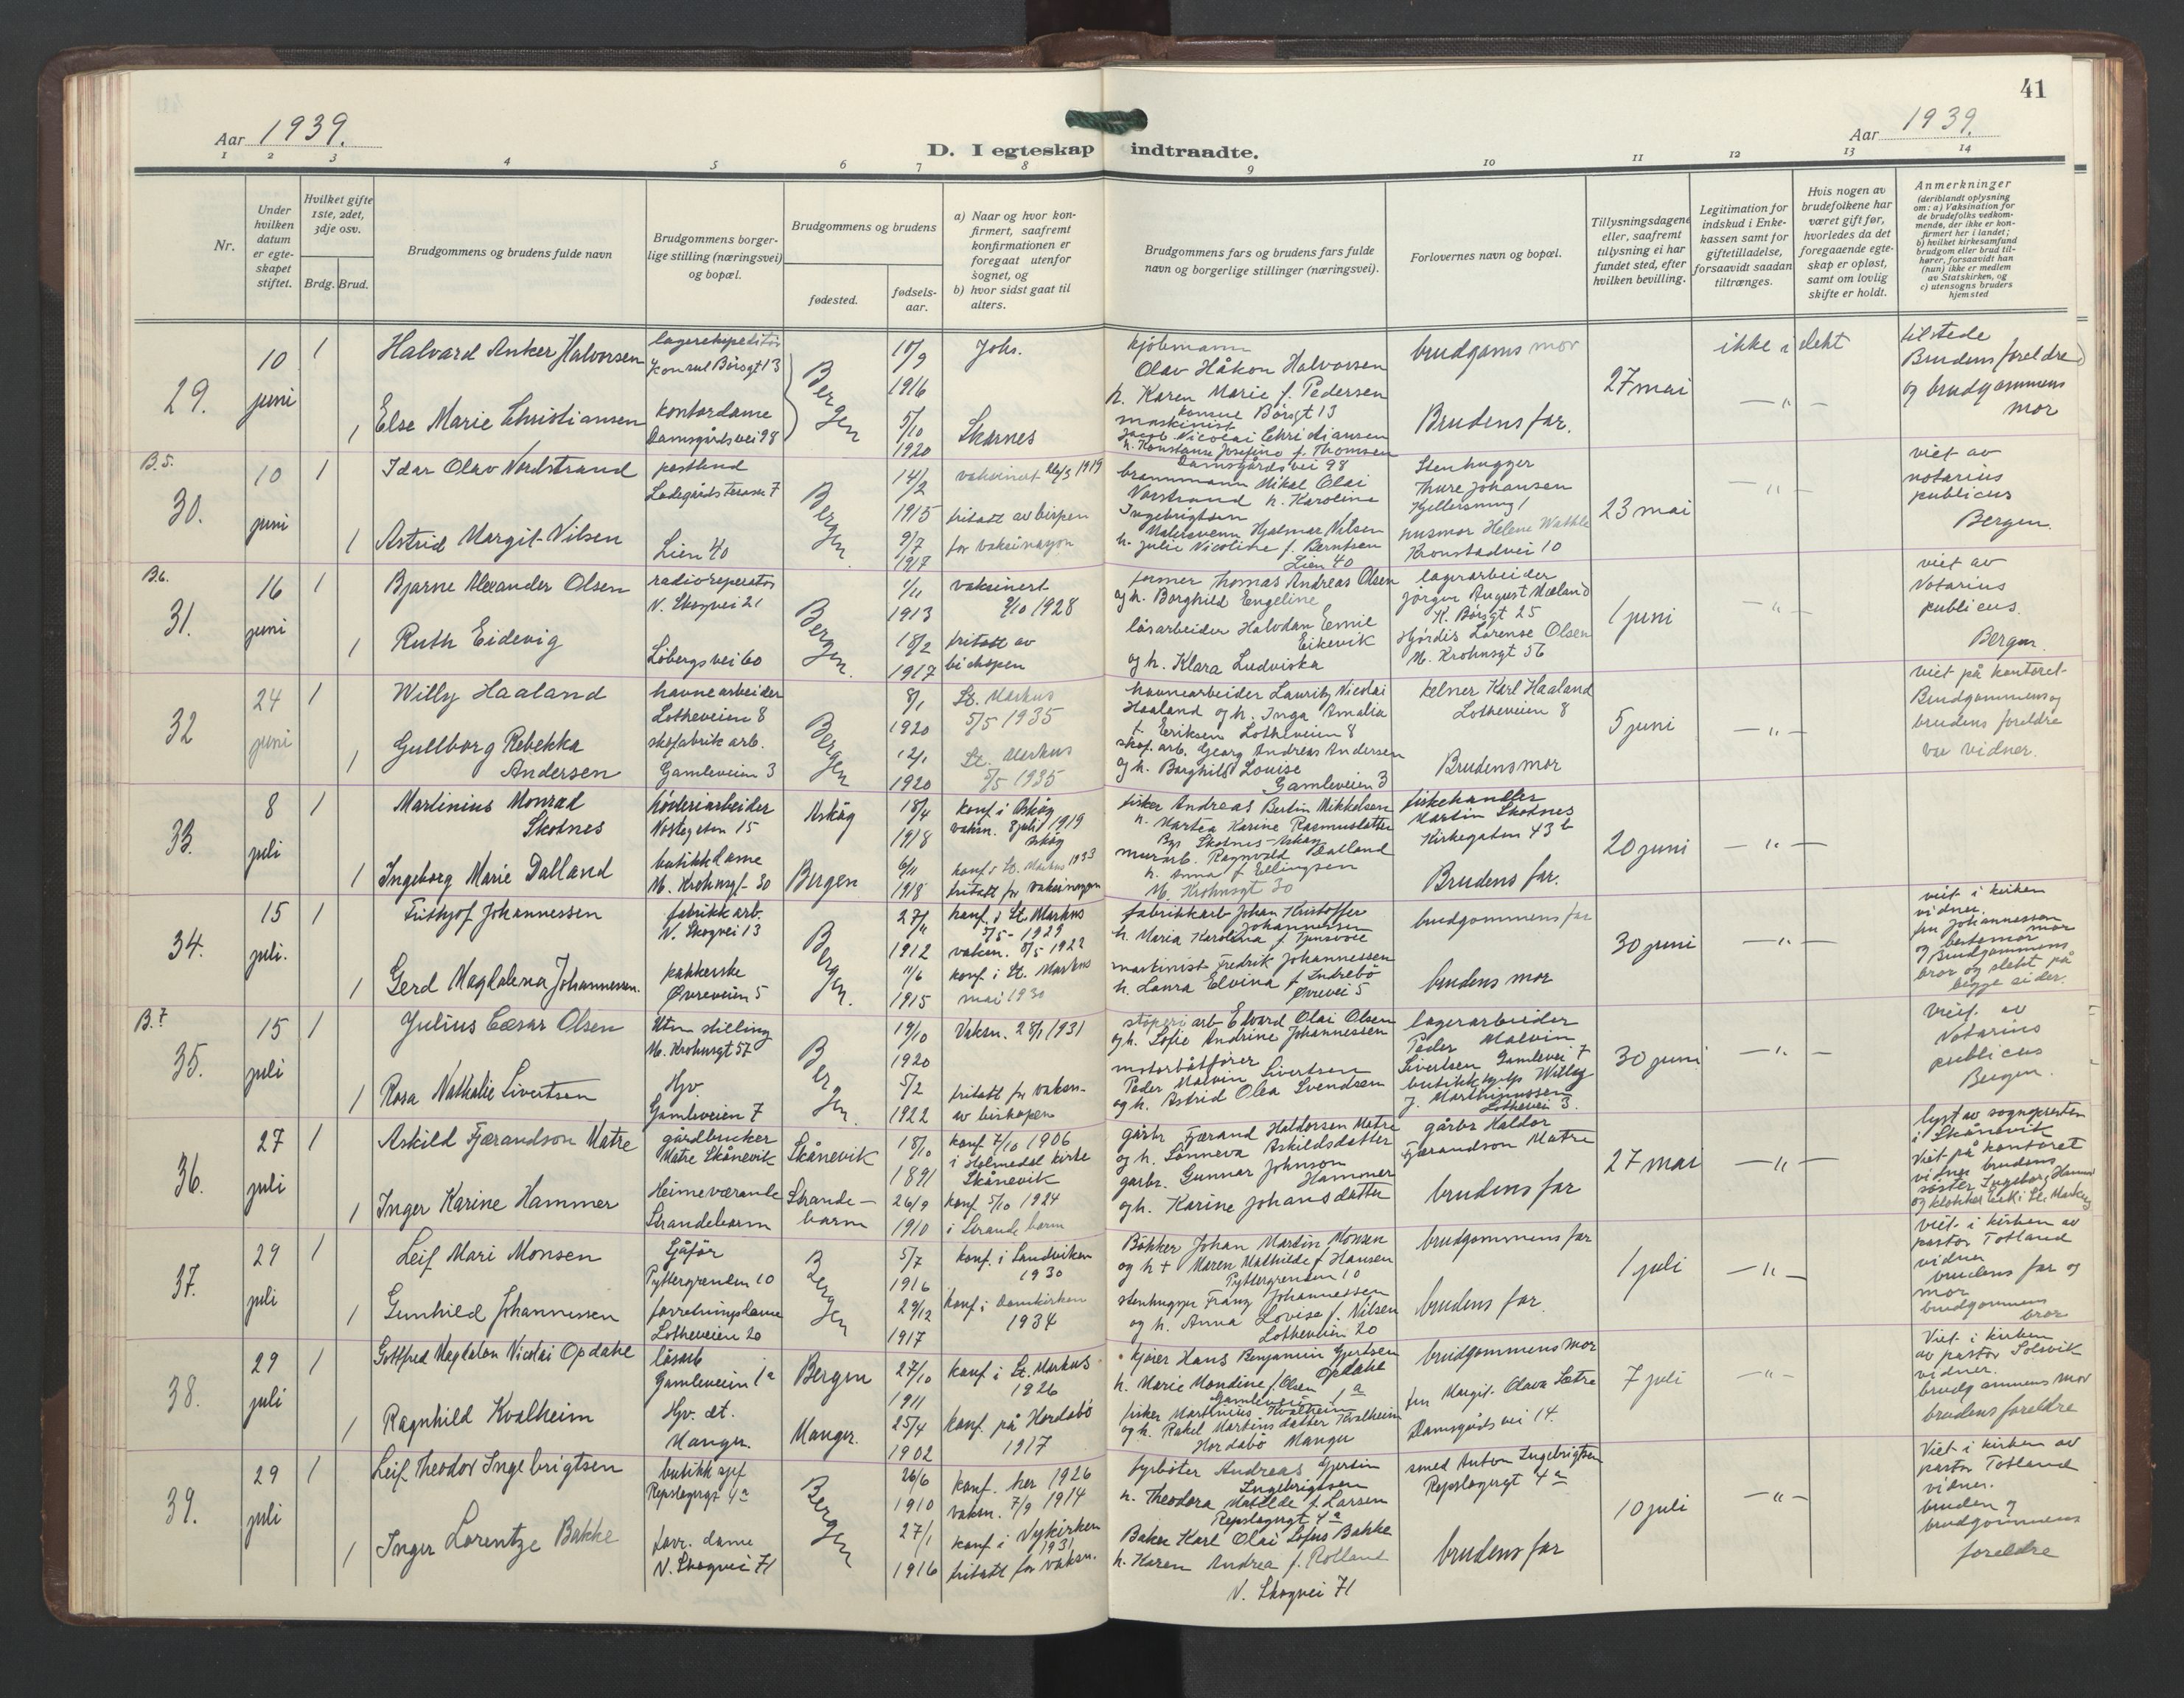 41
Aar 1939.
Aar 1939.
D. I egteskap indtraadte.
1 2 3 4 5 6 7 8 9 10 11 12 13 14
Nr.
Under hvilken datum er egte-skapet stiftet.
Hvilket gifte 1ste, 2det, 3dje osv.
Brdg. Brud.
Brudgommens og brudens fulde navn
Brudgommens borger-lige stilling (næringsvei) og bopæl.
Brudgommens og brudens
fødested.
fødsels-aar.
a) Naar og hvor kon-firmert, saafremt konfirmationen er foregaat utenfor sognet, og
b) hvor sidst gaat til alters.
Brudgommens fars og brudens fars fulde navn og borgerlige stillinger (næringsvei).
Forlovernes navn og bopæl.
Tillysningsdagene eller, saafremt tillysning ei har fundet sted, efter hvilken bevilling.
Legitimation for indskud i Enke-kassen samt for giftetilladelse, forsaavidt saadan tiltrænges.
Hvis nogen av brudefolkene har været gift før, hvorledes da det foregaaende egte-skap er opløst, samt om lovlig skifte er holdt.
Anmerkninger (deriblandt oplysning om: a) Vaksination for de brudefolks vedkom-mende, der ikke er kon-firmert her i landet; b) hvilket kirkesamfund brudgom eller brud til-hører, forsaavidt han (hun) ikke er medlem av Statskirken, og c) utensogns bruders hjemsted
29.
10 juni
1
Halvard Anker Halvorsen
lagerekspeditør
Konsul Børsgt 13
Bergen
10/9 1916
Joh.
kjöbmann
Olav Håkon Halvorsen
h. Karen Marie f. Pedersen
Konsul Börsgt 13
brudgoms mor
27 mai
ikke i slekt
tilstede
Brudens foreldre
og brudgommens
mor
1
Else Marie Christiansen
kontordame
Damsgårdsvei 98
5/10 1920
Skarnes
maskinist
Jacob Nicolai Christiansen
h. Konstanse Josefine f. Thomsen
Damsgårdsvei 98
Brudens far.
B. 5.
30.
10 juni
1
Idar Olav Nordstrand
postbud
Ladegårds terasse 7
Bergen.
14/2 1915
vaksinert 26/3 1919
brannmann Mikal Olai
Norstrand h. Karoline
Ingebrigtsen
Stenhugger
Thure Johansen
Kjellersmug 1
23 mai
viet av
notarius
publicus
Bergen.
1
Astrid Margit Nilsen
Lien 40
9/7 1917
fritatt av bispen
for vaksinasjon
Malersvenn Hjalmar Nilsen
h. Julie Nicoline f. Berntsen
Lien 40
husmor Helene Wathle
Kronstadvei 10
B. 6.
31.
16 juni
1
Bjarne Alexander Olsen
radioreperatör
N. Skogvei 21
Bergen.
1/11 1913
vaksinert
9/10 1928
former Thomas Andreas Olsen
og h. Borghild Engeline
lagerarbeider
Jörgen August Mæland
K. Börsgt 25
1 juni
viet av
Notarius
publicus.
Bergen.
1
Ruth Eidevig
Löbergsvei 60
18/2 1917
fritatt av
bishopen
låsarbeider Halvdan Emil
Eikevik
og h. Klara Ludviska
Hjördis Lorense Olsen
M. Krohnsgt 56
32
24 juni
1
Willy Haaland
havnearbeider
Lotheveien 8
Bergen
8/1 1920
St. Markus
5/5 1935
havnearbeider Lauritz Nicolai
Haaland og h. Inga Amalia
f. Eriksen Lotheveien 8
kelner Karl Haaland
Lotheveien 8
5 juni
viet på kontoret
Brudgommens og
brudens foreldre
var vidner.
1
Gullborg Rebekka
Andersen
skofabrik arb.
Gamleveien 3
12/1 1920
St. Markus
5/5 1935
skof. arb. Georg Andreas Andersen
og h. Borghild Louise
Gamleveien 3
Brudens mor
33.
8 juli
1
Martinius Monrad
Skotnes
Nostegaten 15
Askög
18/4 1918
konf. i Askög
vaksn. 8 juli 1919
Askög
fisker Andreas Bertin Mikkelsen
h. Martea Karine Rasmusdatter
Skotnes - Askøy
fiskehandler
Martin Skotnes
Kirkegaten 43 b
20 juni
1
Ingeborg Marie Dalland
butikkdame
M. Krohnsgt 30
Bergen
6/11 1918
konf. i St. Markus 1933
fritatt for vaksinasjon
murarb. Ragnvald Dalland
h. Anna f. Ellingsen
M. Krohnsgt 30
Brudens far.
34.
15 juli.
1
Frithjof Johannessen
fabrikk arb.
N. Skogvei 13
Bergen.
27/11 1912
konf. i St. Markus
- 1929
vaksn. 8/5 1922
fabrikkarb Johan Kristoffer
Johannessen
h. Maria Karolina f.
brudgommens far
30 juni
viet i kirken
vidner.
fru Johannessen
mor
og bestemor
Brudgommens
bror og slekt på
begge sider.
1
Gerd Magdalena Johannessen.
pakkerske
Øvreveien 5
11/6 1915
konf. i St. Markus
mai 1930
maskinist Fredrik Johannessen
h. Laura Elvina f. Indrebö
Øvrevei 5
brudens mor
B. 7
35.
15 juli
1
Julius Cæsar Olsen
Uten stilling
M. Krohnsgt 57
Bergen.
19/10 1920
Vaksn. 28/1 1931
stöperi arb Edvard Olai Olsen
og h. Sofie Andrine Johannessen
lagerarbeider
Peder Malvin
Sivertsen Gamlevei 7
30 juni
Viet av
Notarius
publicus
Bergen.
1
Rosa Nathalie Sivertsen
Hjv.
Gamleveien 7
5/2 1922
fritatt for vaksn.
av biskopen
motorbåtförer
Peder Malvin Sivertsen
og h. Astrid Olea Svendsen
butikkhjelp Willy
J. Marthinussen
Lothevei 3.
36.
27 juli
1
Askild Fjærandson Matre
gårdbruker
Matre Skånevik
Skånevik
18/10 1891
konf. 7/10 1906
i Holmedal kirke
Skånevik
gårbr Fjærand Haldorsen Matre
og h. Sönneva Askildsdatter
gårbr Haldor
Fjærandson Matre
27 mai
lyst av sognepresten
i Skånevik
Viet på kontoret
vidner brudens
söster Ingeborg Hammer
og klokker Eek i St. Markus
1
Inger Karine Hammer
Heimeværande
Strandebarm
Strande-
barm
26/9 1910
konf 5/10 1924
i Strandebarm
garbr. Gunnar Johnson
Hammer
og h. Karine Johansdatter
brudens far
37.
29 juli
1
Leif Mari Monsen
Sjåför
Pyttergrenden 10
Bergen
5/7 1916
konf. i Sandviken
1930
Böhker Johan Martin Monsen
og h + Maren Mathilde f Hansen
Pyttergrenden 10
brudgommens far
1 juli
viet i kirken av
pastor Totland
vidner
brudens far og
mor
brudgommens
bror
1
Gunhild Johannessen
forretningsdame
Lotheveien 20
29/12 1917
konf. i Domkirken
1934
stenhugger Franz Johannessen
og h. Anna Lovise f. Nilsen
Lotheveien 20
brudens far.
38.
29 juli
1
Gottfred Magdalon Nicolai Opdahl
låsarb
Gamleveien 1 a
Bergen
27/10 1911
konf. i St. Markus
1926
kjörer Hans Benjamin Gjertsen
Opdahl
h. Marie Mondine f. Olsen
Gamleveien 1 a
brudgommens mor
7 juli
Viet i kirken
av pastor Solsvik
vidner.
brudgommens mor
brudens foreldre
1
Ragnhild Kvalheim
Hjv. dt.
Manger.
Manger.
25/4 1902
konf. på Hordabö
1917
fisker Martinius Kvalheim
og h. Rakel Martinsdatter Kvalheim
Hordabö Manger
fru Margit Olava Sætre
Damsgårdsvei 14.
39.
29 juli
1
Leif Theodor Ingebrigtsen
butikksjef
Repslagergt 4 a
Bergen
26/6 1910
konf. her 1926
vaksn. 7/9 1914
fyrböter Andreas Gjertin
Ingebrigtsen
h. Theodora Matilde f. Larsen
Repslagergt 4 a
smed Anton Ingebrigtsen
Repslagergt 4 a
10 juli
Viet i kirken av
pastor Totland
vidner.
bruden og
brudgommens
foreldre
1
Inger Lorentze Bakke
forr. dame
N. Skogvei 71
27/1 1916
konf i Nykirken
1931
fritatt for vaksn.
Baker Karl Olai Sofus Bakke
h. Karen Andrea f. Rolland
N. Skogvei 71
brudens far